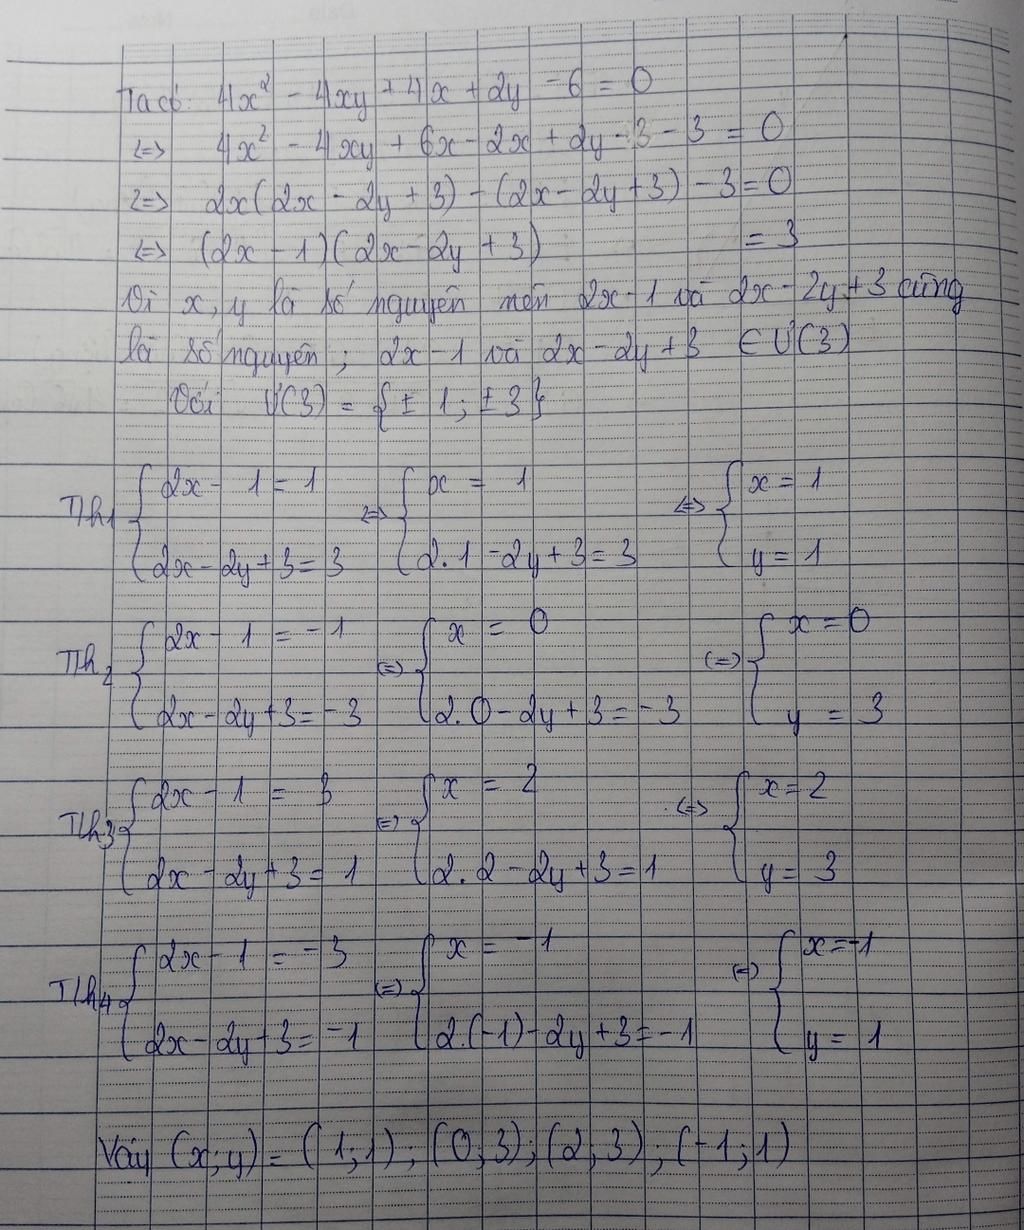 Ta có: 4x² - 4xy + 4x + 2y - 6 = 0
<=> 4x² - 4xy + 6x - 2x + 2y - 3 - 3 = 0
<=> 2x(2x - 2y + 3) - (2x - 2y + 3) - 3 = 0
<=> (2x - 1)(2x - 2y + 3) = 3
Vì x, y là số nguyên nên 2x - 1 và 2x - 2y + 3 cũng
là số nguyên; 2x - 1 và 2x - 2y + 3 ∈ Ư(3)
Với Ư(3) = {± 1; ± 3}
Th1 { 2x - 1 = 1 <=> { x = 1 <=> { x = 1
2x - 2y + 3 = 3 2.1 - 2y + 3 = 3 y = 1
Th2 { 2x - 1 = -1 <=> { x = 0 <=> { x = 0
2x - 2y + 3 = -3 2.0 - 2y + 3 = -3 y = 3
Th3 { 2x - 1 = 3 <=> { x = 2 <=> { x = 2
2x - 2y + 3 = 1 2.2 - 2y + 3 = 1 y = 3
Th4 { 2x - 1 = -3 <=> { x = -1 <=> { x = -1
2x - 2y + 3 = -1 2.(-1) - 2y + 3 = -1 y = 1
Vậy (x; y) = (1; 1); (0; 3); (2; 3); (-1; 1)